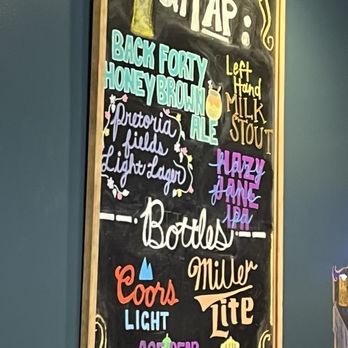 On TAP:
BACK FORTY
HONEY BROWN
ALE
Left
Hand
MILK
STOUT
Pretoria
fields
Light Lager
HAZY
JANE
IPA
Bottles
Coors
LIGHT
Miller
Lite